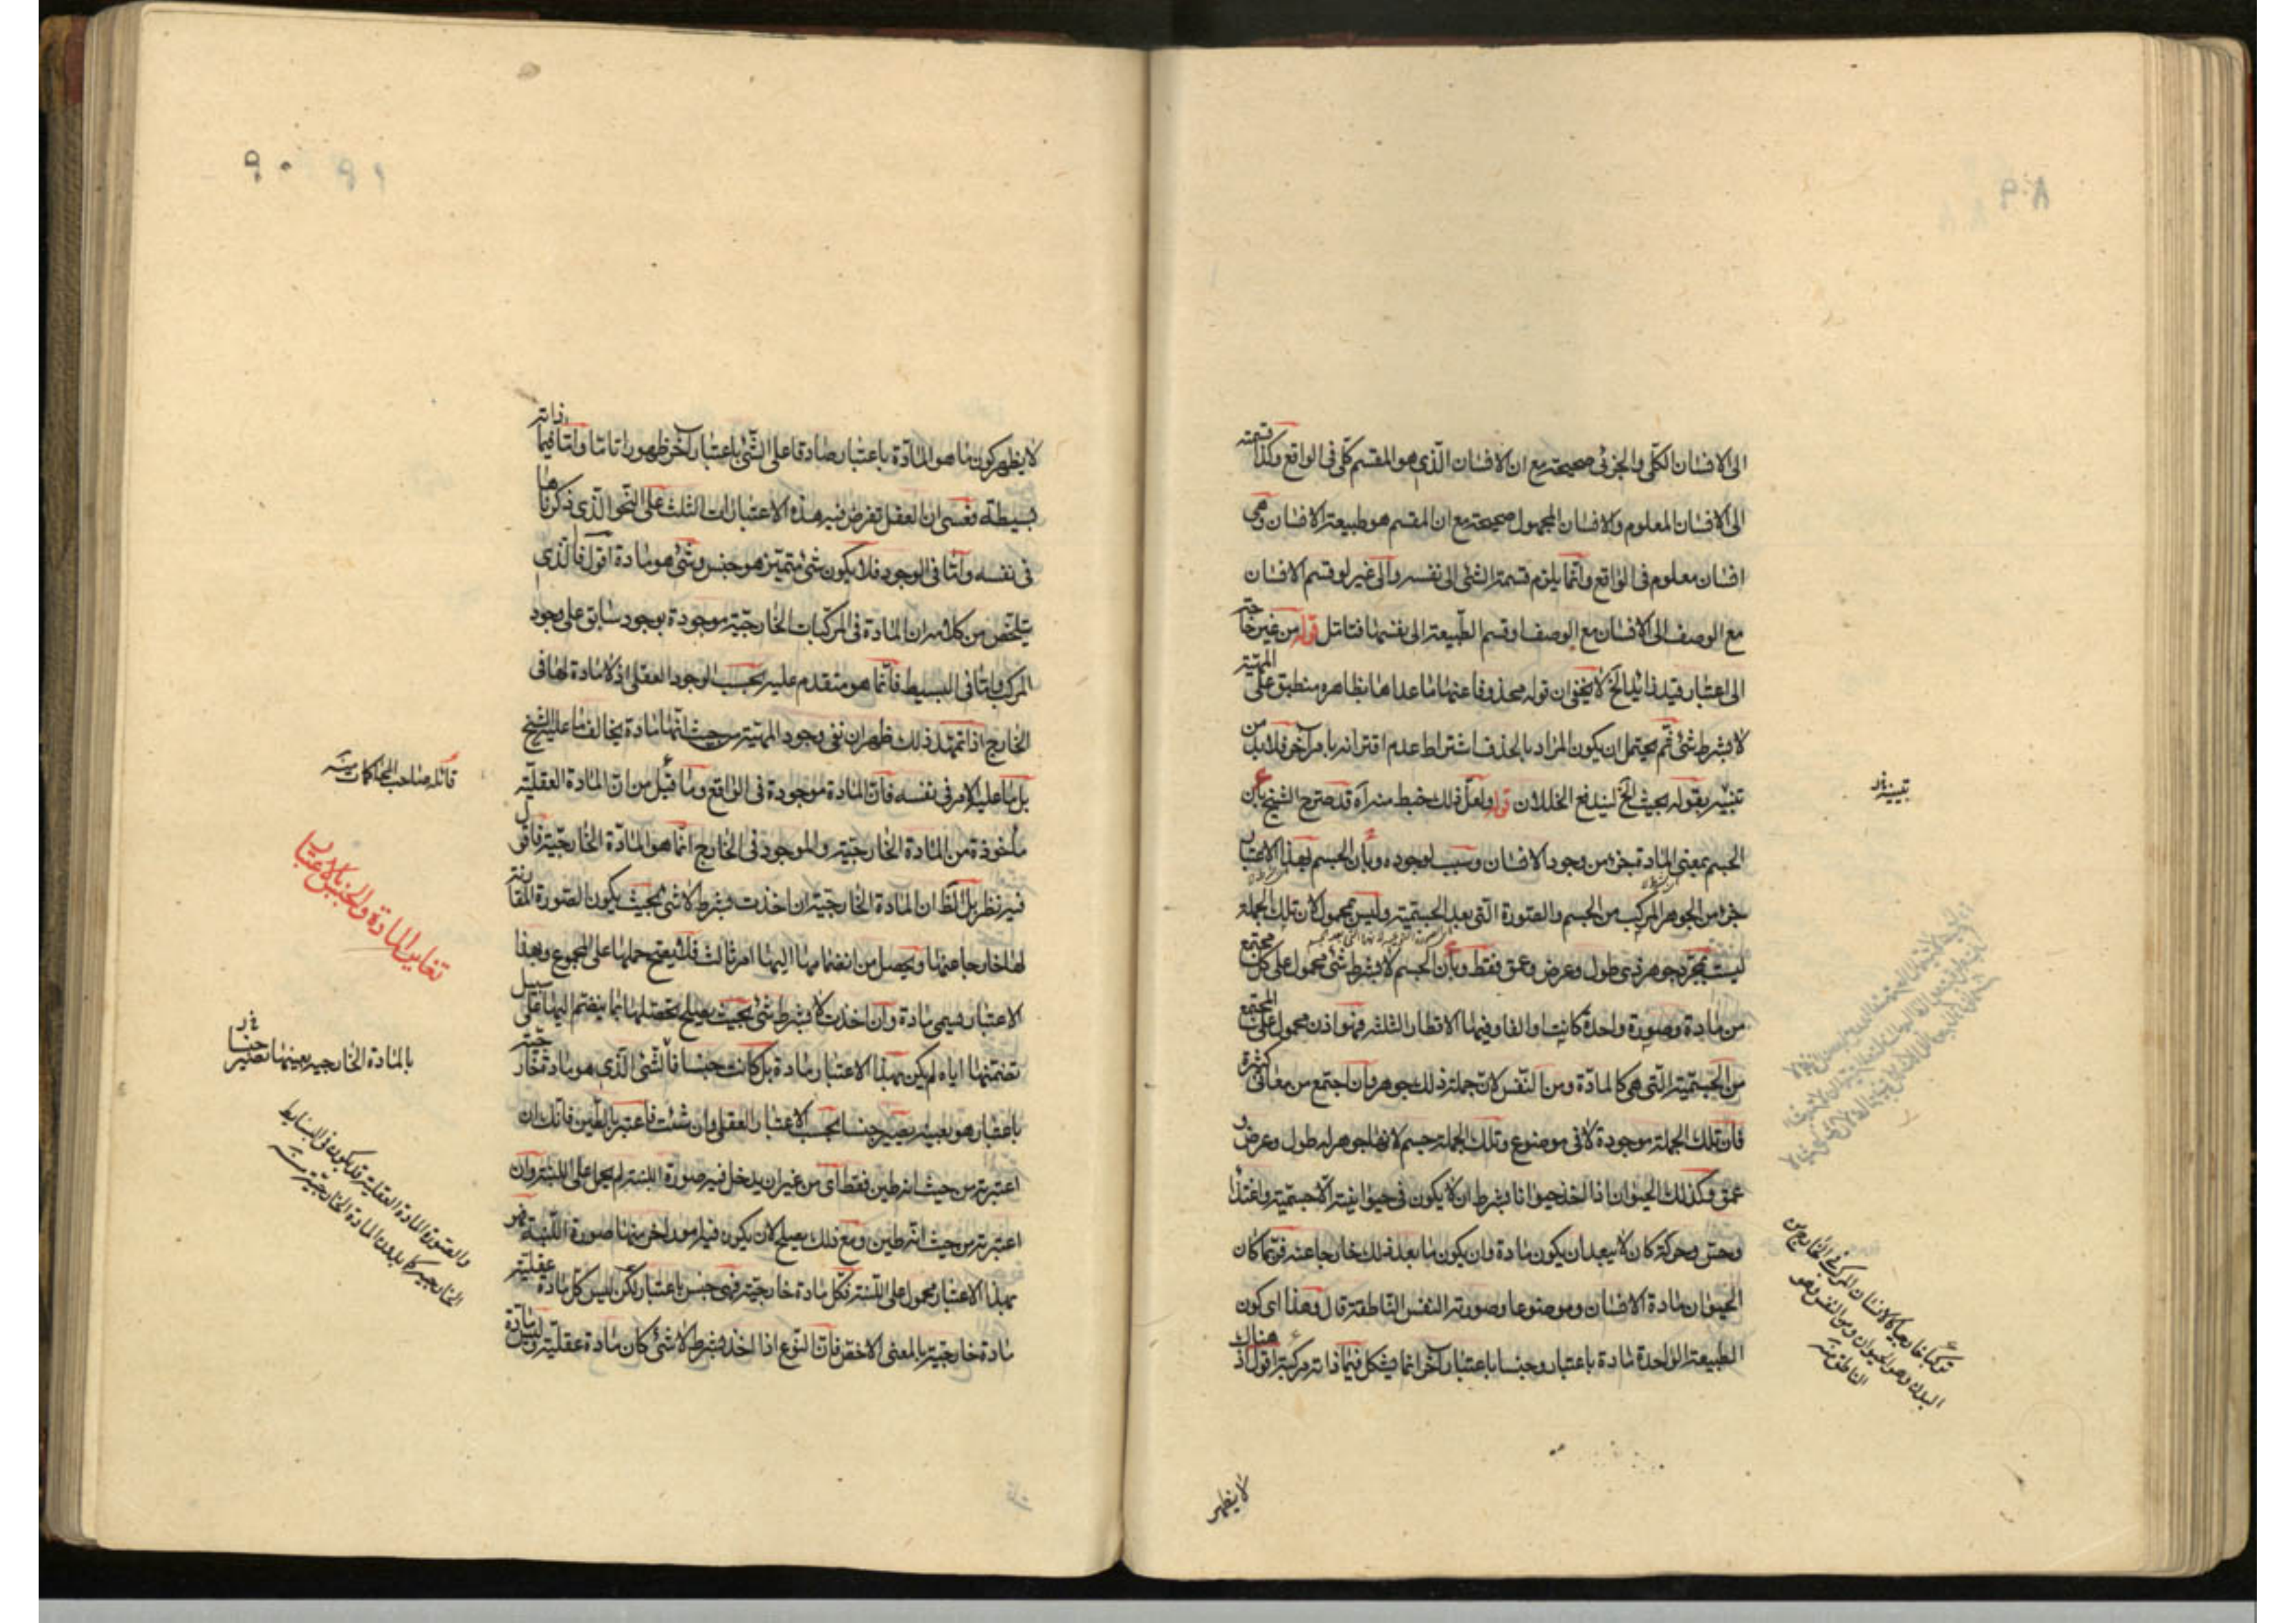 ٨٩
الى الانسان الكلى والجزئى صحيحة مع ان الانسان الذى هو المقسم كلى فى الواقع وكذا قسمته
الى الانسان المعلوم والانسان المجهول صحيحة مع ان المقسم هو طبيعة الانسان وهى
انسان معلوم فى الواقع وانما يلزم قسمة الشئ الى نفسه والى غيره لو قسم الانسان
مع الوصف الى الانسان مع الوصف او قسم الطبيعة الى نفسها فتامل قوله من غير حاجة
الى اعتبار قيد زائد الخ لا يخفى ان قوله محذوفا عنها ما عداها بظاهره منطبق على المهية
لا بشرط شئ ثم يحتمل ان يكون المراد بالحذف اشتراط عدم اقترانه بامر آخر فلا بد من
تقييده بقوله بحيث الخ ليندفع الخلل لان قوله ولعل ذلك خبط منه آه قد صرح الشيخ بان
الجسم بمعنى المادة جزء من وجود الانسان وسبب لوجوده وبأن الجسم بهذا الاعتبار
جزء من الجوهر المركب من الجسم والصورة التى بعد الجسمية وليس بمحمول لان تلك الجملة
ليست بمجرد جوهر ذى طول وعرض وعمق فقط وبأن الجسم لا بشرط شئ محمول على كل مجتمع
من مادة وصورة واحدة كانت او الفا وفيها الاقطار الثلثة فهو اذن محمول على المجتمع
من الجسمية التى هى كالمادة ومن النفس لان جملة ذلك جوهر وان اجتمع من معانى كثيرة
فان تلك الجملة موجودة لا فى موضوع وتلك الجملة جسم لانها جوهر له طول وعرض و
عمق وكذلك الحيوان اذا اخذ حيوانا بشرط ان لا يكون فى حيوانيته الا جسمية واغتذاء
وحس وحركة كان لا يبعد ان يكون مادة وان يكون ما بعد ذلك خارجا عنه فربما كان
الحيوان مادة الانسان وموضوعا وصورته النفس الناطقة قال وهذا اى كون
الطبيعة الواحدة مادة باعتبار وجنسا باعتبار آخر انما يشكل فيما ذاته مركبة اقول اذ هناك
لا يظهر
تركيبا خارجيا كالانسان المركب فى الخارج من
البدن وهو الحيوان ومن النفس وهو
الناطق منه
٩٠
لا يظهر كون ما هو المادة باعتبار صادقا على الشئ باعتبار آخر ظهورا تاما واما فيما ذاته
بسيطة فعسى ان العقل تفرض فيه هذه الاعتبارات الثلث على النحو الذى ذكرناها
فى نفسه واما فى الوجود فلا يكون شئ متميز هو جنس وشئ هو مادة اقول فالذى
يتلخص من كلامه ان المادة فى المركبات الخارجية موجودة بوجود سابق على وجود
المركب واما فى البسيط فانما هو متقدم عليه بحسب الوجود العقلى اذ لا مادة لها فى
الخارج اذا تمهد ذلك ظهر ان نفى وجود المهية من حيث انها مادة يخالف ما عليه الشيخ
بل ما عليه الامر فى نفسه فان المادة موجودة فى الواقع وما قيل من ان المادة العقلية
مأخوذة من المادة الخارجية والموجود فى الخارج انما هو المادة الخارجية فاقول
فيه نظر بل الظ ان المادة الخارجية ان اخذت بشرط لا شئ بحيث يكون الصورة المقارنة
لها خارجا عنها ويحصل من انضمامها اليها امر ثالث فلا يصح حملها على المجموع وبهذا
الاعتبار هى مادة وان اخذت لا بشرط شئ بحيث يصلح تحصلها بما ينضم اليها على سبيل
تضمنها اياه لم يكن بهذا الاعتبار مادة بل كانت جنسا فالشئ الذى هو مادة خارجية
باعتبار هو بعينه يصير جنسا بحسب الاعتبار العقلى وان شئت فاعتبر بالطين فانك ان
اعتبرته من حيث انه طين فقط اى من غير ان يدخل فيه صورة اللبنة لم يحمل على اللبنة وان
اعتبرته من حيث انه طين ومع ذلك يصلح لان يكون فيه امور اخر منها صورة اللبنة فهو
بهذا الاعتبار محمول على اللبنة فكل مادة خارجية فهى جنس باعتبار لكن ليس كل مادة عقلية
مادة خارجية بالمعنى الاخص فان النوع اذا اخذ بشرط لا شئ كان مادة عقلية وليس مادة
قائله صاحب المحاكمات منه
تغاير المادة والجنس بالاعتبار
بالمادة الخارجية بعينها تصير جنسا
والصورة المادة العقلية قد يكون فى البسايط
الخارجية كا بدون المادة الخارجية منه